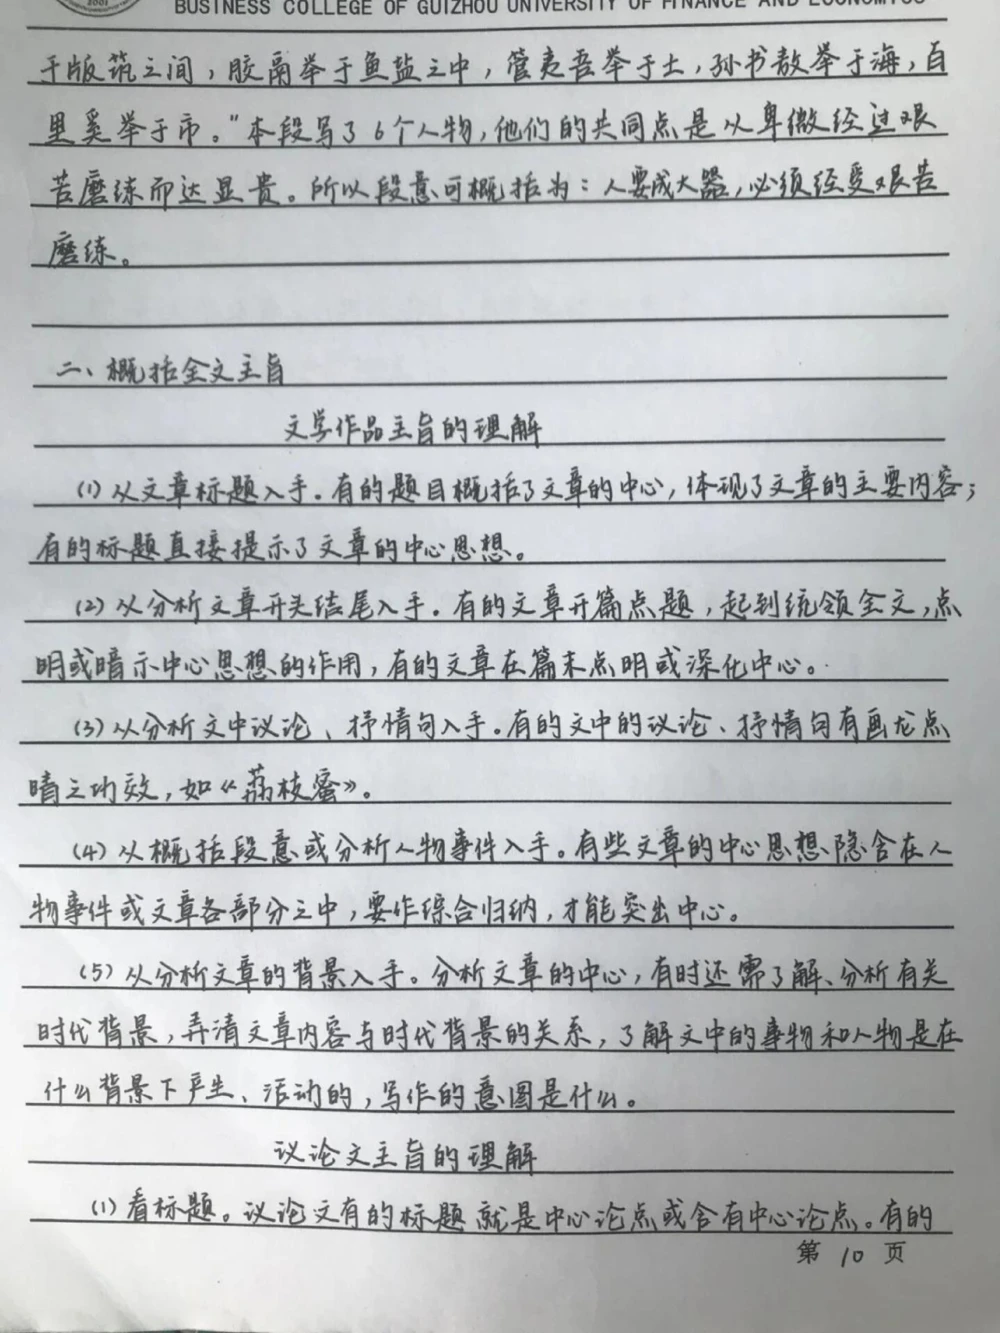 BUSINESS COLLEGE OF GUIZHOU UNIVERSITY OF FINANCE AND ECONOMICS
于版筑之间，胶鬲举于鱼盐之中，管夷吾举于士，孙书敖举于海，百
里奚举于市。”本段写了6个人物，他们的共同点是从卑微经过艰
苦磨练而达显贵。所以段意可概括为：人要成大器，必须经受艰苦
磨练。
二、概括全文主旨
文学作品主旨的理解
(1)从文章标题入手。有的题目概括了文章的中心，体现了文章的主要内容；
有的标题直接提示了文章的中心思想。
(2)从分析文章开头结尾入手。有的文章开篇点题，起到统领全文，点
明或暗示中心思想的作用，有的文章在篇末点明或深化中心。
(3)从分析文中议论、抒情句入手。有的文中的议论、抒情句有画龙点
睛之功效，如《荔枝蜜》。
(4)从概括段意或分析人物事件入手。有些文章的中心思想隐含在人
物事件或文章各部分之中，要作综合归纳，才能突出中心。
(5)从分析文章的背景入手。分析文章的中心，有时还需了解、分析有关
时代背景，弄清文章内容与时代背景的关系，了解文中的事物和人物是在
什么背景下产生、活动的，写作的意图是什么。
议论文主旨的理解
(1)看标题。议论文有的标题就是中心论点或含有中心论点。有的
第 10 页